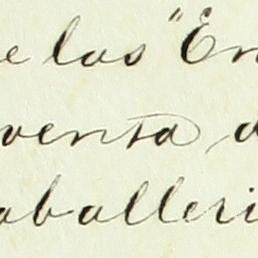 e los "En
venta d
aballeri